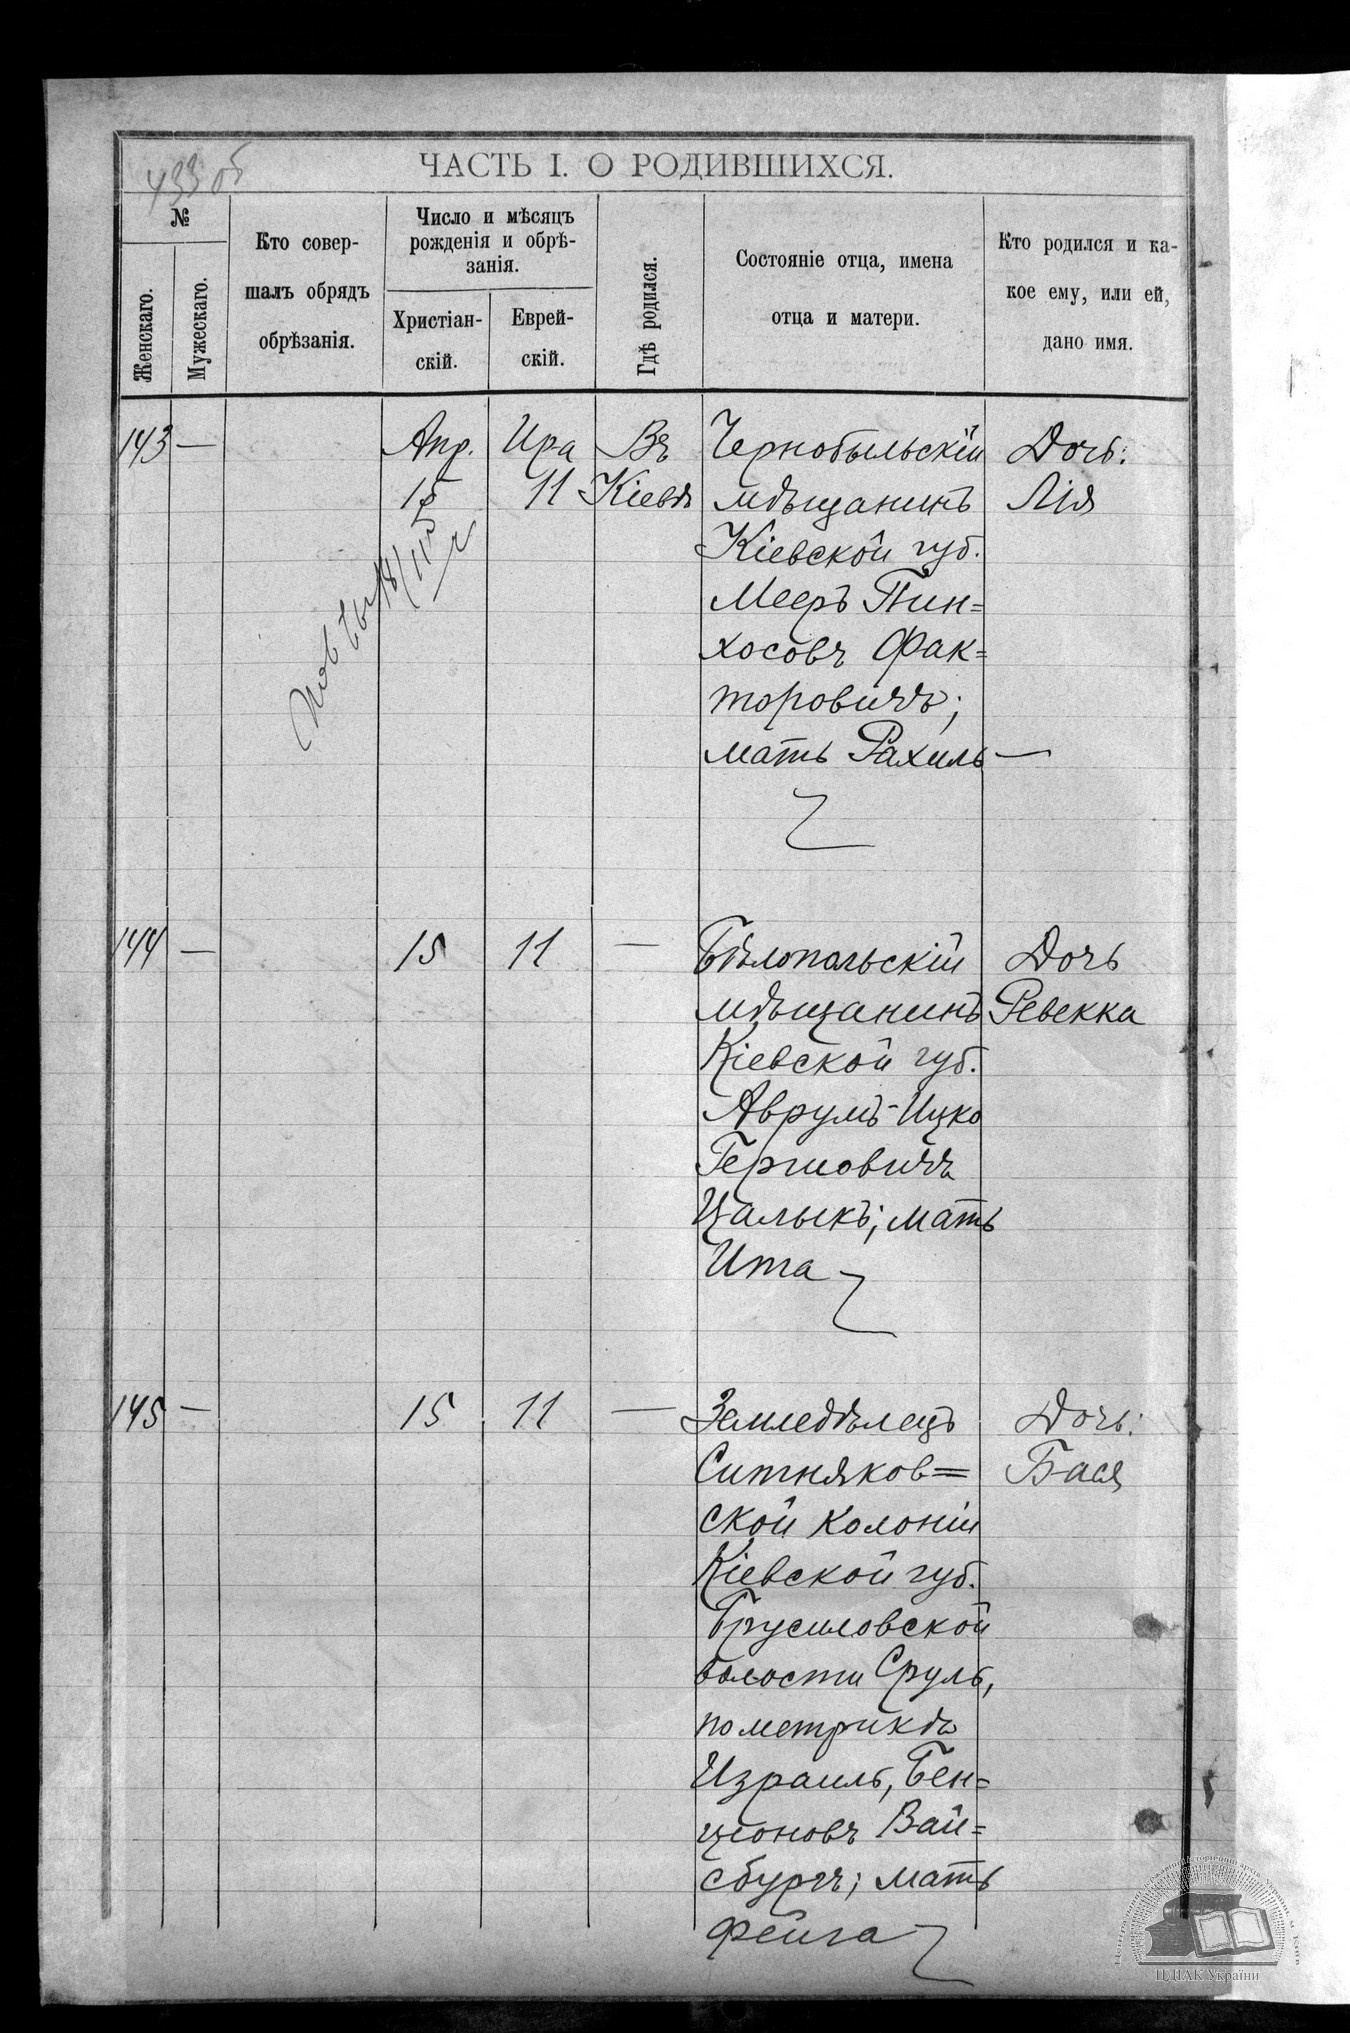 433 об
ЧАСТЬ I. О РОДИВШИХСЯ.
№
Женскаго.
Мужескаго.
Кто совер-
шалъ обрядъ
обрѣзанія.
Число и мѣсяцъ
рожденія и обрѣ-
занія.
Христіан-
скій.
Еврей-
скій.
Гдѣ родился.
Состояніе отца, имена
отца и матери.
Кто родился и ка-
кое ему, или ей,
дано имя.
143 —
Апр.
15
Ира
11
Въ
Кіевѣ
Чернобыльскій
мѣщанинъ
Кіевской губ.
Мееръ Пин=
хосовъ Фак=
торовичъ;
мать Рахиль —
Дочь:
Лія
144 — 15 11 —
Бѣлопольскій
мѣщанинъ
Кіевской губ.
Аврумъ-Ицко
Гершовичъ
Цалыкъ; мать
Ита
Дочь
Ревекка
145 — 15 11 —
Земледѣлецъ
Ситняков=
ской колоніи
Кіевской губ.
Брусиловской
волости Сруль,
по метрикѣ
Израиль, Бен=
ціоновъ Вай=
сбургъ; мать
Фейга
Дочь:
Бася
ЦДІАК України